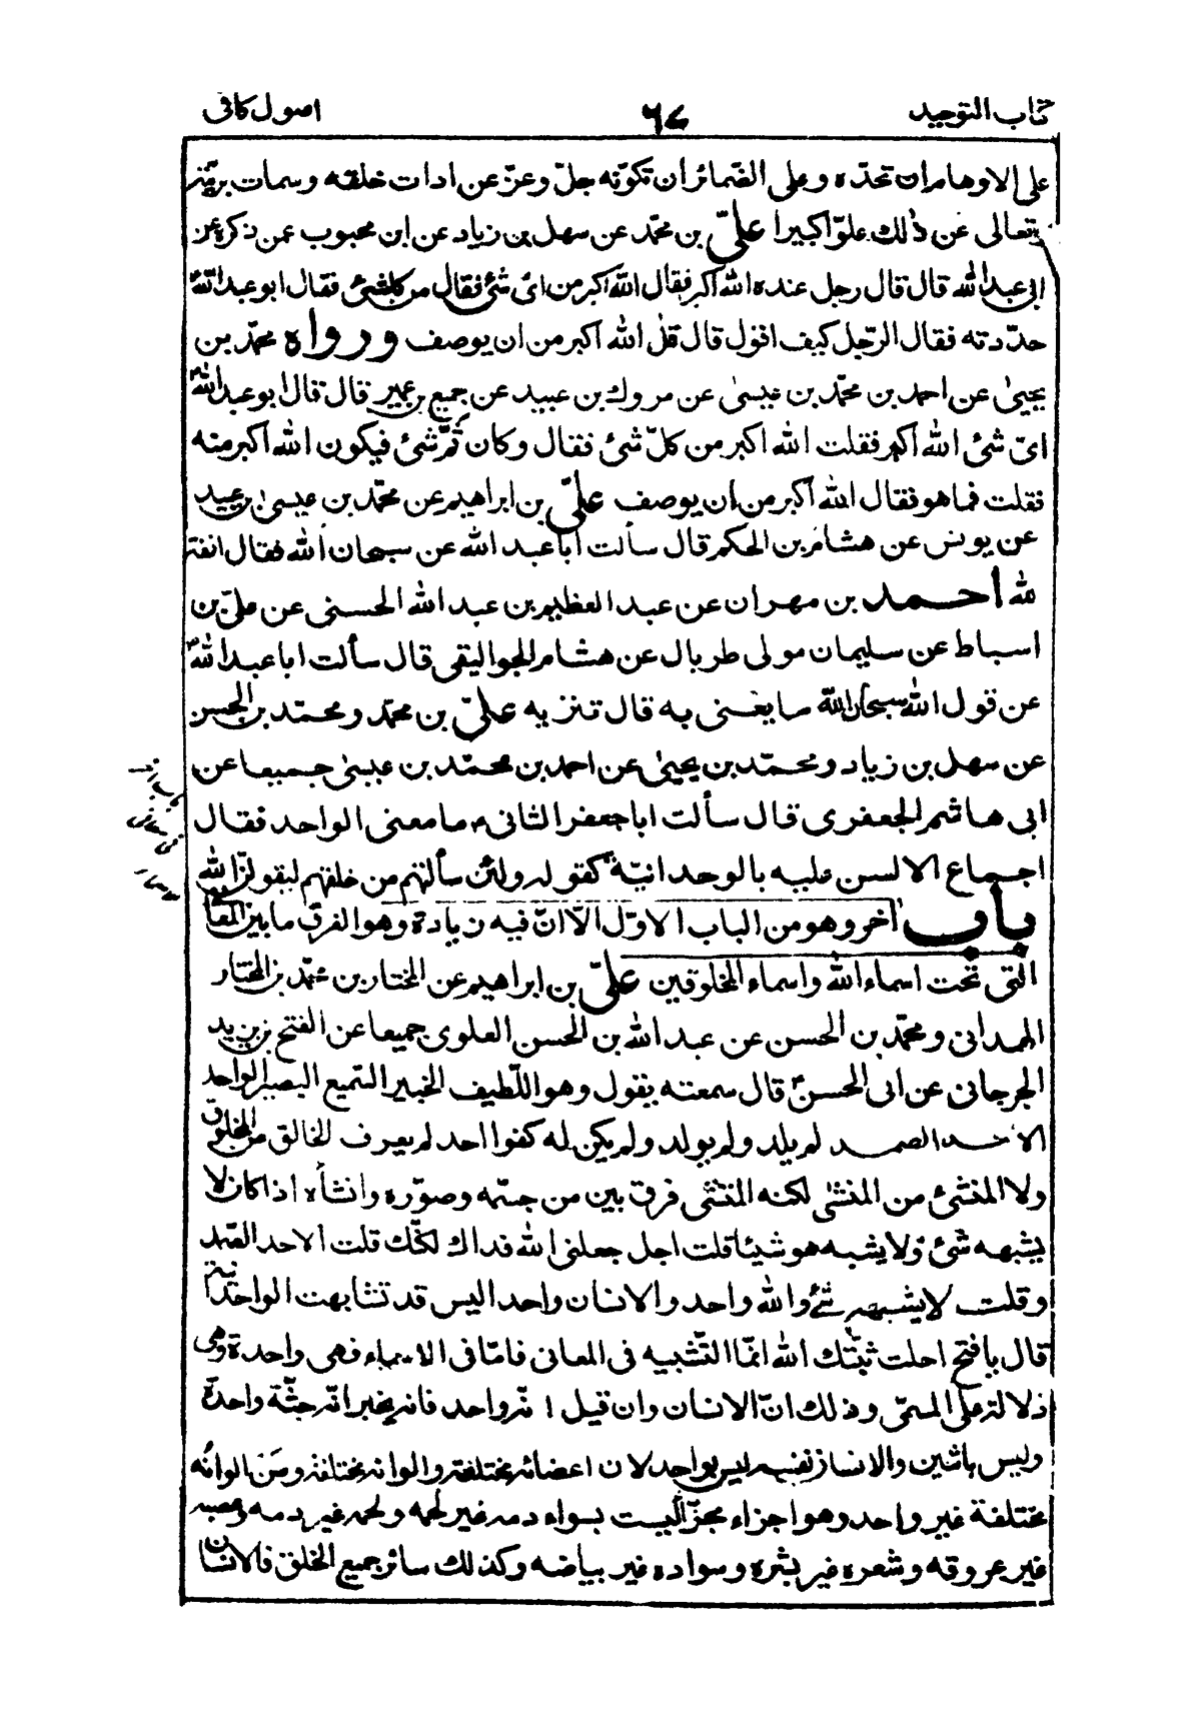 كتاب التوحيد ٦٤ اصول كافى
على الاوهام ان تحدّه وعلى الضمائر ان تكوّنه جلّ وعزّ عن ادات خلقه وسمات بريّته
وتعالى عن ذلك علوّا كبيرا علىّ بن محمّد عن سهل بن زياد عن ابن محبوب عمن ذكره عن
ابى عبدالله قال قال رجل عنده الله اكبر فقال الله اكبر من اىّ شئ فقال من كلشئ فقال ابوعبداللهؑ
حدّدته فقال الرّجل كيف اقول قال قل الله اكبر من ان يوصف ورواه محمّد بن
يحيىٰ عن احمد بن محمّد بن عيسىٰ عن مروك بن عبيد عن جميع بن عمير قال قال ابوعبداللهؑ
اىّ شئ الله اكبر فقلت الله اكبر من كلّ شئ فقال وكان ثَمّ شئ فيكون الله اكبر منه
فقلت فما هو فقال الله اكبر من ان يوصف علىّ بن ابراهيم عن محمّد بن عيسىٰ بن عبيد
عن يونس عن هشام بن الحكم قال سألت اباعبد الله عن سبحان الله فقال انفة
لله أحمد بن مهران عن عبد العظيم بن عبد الله الحسنى عن علىّ بن
اسباط عن سليمان مولى طربال عن هشام الجواليقى قال سألت اباعبداللهؑ
عن قول الله سبحان الله ما يعنى به قال تنزيه علىّ بن محمّد ومحمّد بن الحسن
عن سهل بن زياد ومحمّد بن يحيىٰ عن احمد بن محمّد بن عيسىٰ جميعا عن
ابى هاشم الجعفرى قال سألت اباجعفر الثانى ما معنى الواحد فقال
اجماع الالسن عليه بالوحدانيّة كقوله ولئن سألتهم من خلقهم ليقولنّ الله
باب آخر وهو من الباب الاوّل الّا انّ فيه زيادة وهو الفرق ما بين المعانى
التى تحت اسماء الله واسماء المخلوقين علىّ بن ابراهيم عن المختار بن محمّد بن المختار
الهمدانى ومحمّد بن الحسن عن عبد الله بن الحسن العلوى جميعا عن الفتح بن يزيد
الجرجانى عن ابى الحسنؑ قال سمعته يقول وهو اللّطيف الخبير السّميع البصير الواحد
الاحد الصمد لم يلد ولم يولد ولم يكن له كفوا احد لم يعرف الخالق من المخلوق
ولا المنشئ من المنشا لكنه المنشئ فرق بين من جسّمه وصوّره وانشأه اذ كان لا
يشبهه شئ ولا يشبه هو شيئا قلت اجل جعلنى الله فداك لكنّك قلت الاحد الصّمد
وقلت لا يشبهه شئ والله واحد والانسان واحد اليس قد تشابهت الواحدانية
قال يا فتح احلت ثبّتك الله انّما التّشبيه فى المعانى فامّا فى الاسماء فهى واحدة وهى
دلالة على المسمّى وذلك انّ الانسان وان قيل انّه واحد فانه يخبر انّه جثّة واحدة
وليس باثنين والانسان نفسه ليس بواحد لان اعضائه مختلفة والوانه مختلفة ومن الوانُه
مختلفة غير واحد وهو اجزاء مجزّا ليست بسواء دمه غير لحمه ولحمه غير دمه وعصبه
غير عروقه وشعره غير بشره وسواده غير بياضه وكذلك سائر جميع الخلق فالانسان